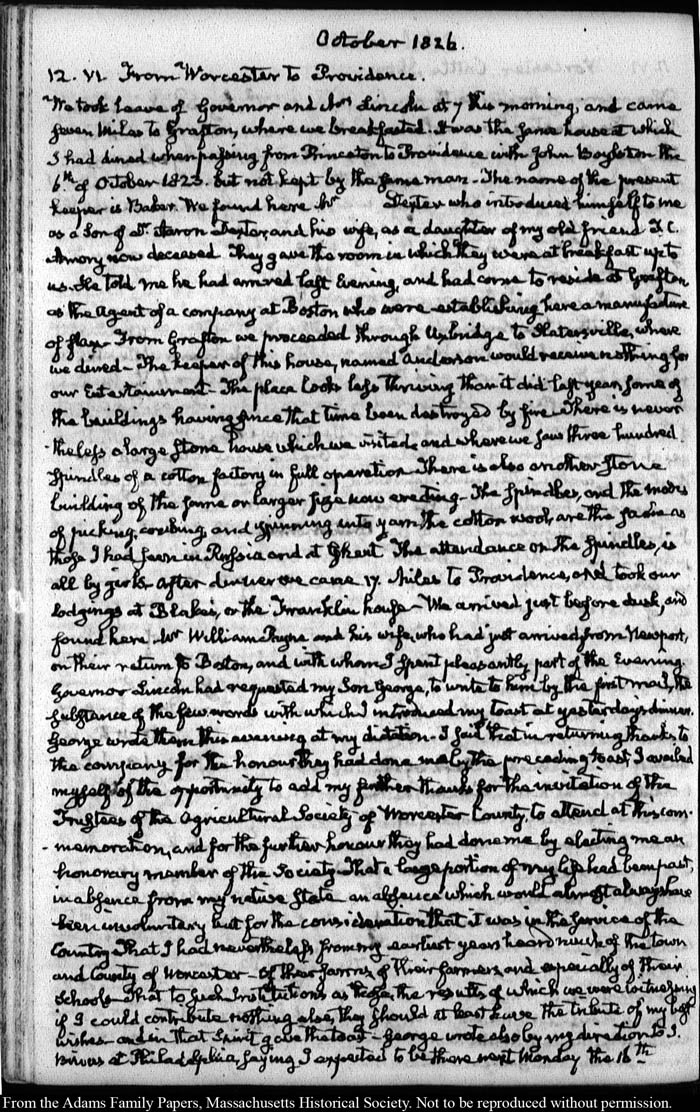 October 1826.
12. VI. From Worcester to Providence.
We took leave of Governor and Mrs Lincoln at 7 this morning, and came
seven Miles to Grafton, where we breakfasted. It was the same house at which
I had dined when passing from Princeton to Providence with John Boylston the
6th of October 1823. but not kept by the same man. The name of the present
keeper is Baker. We found here Mr Dexter who introduced himself to me
as a Son of Dr. Aaron Dexter, and his wife, as a daughter of my old friend T. C.
Amory now deceased. They gave the room in which they were at breakfast up to
us. He told me he had arrived last Evening, and had come to reside at Grafton
as the Agent of a company at Boston who were establishing here a manufacture
of flax. From Grafton we proceeded through Uxbridge to Slatersville, where
we dined. The keeper of this house, named Anderson would receive nothing for
our Entertainment. The place looks less thriving than it did last year, some of
the buildings having since that time been destroyed by fire. There is never
-theless a large Stone house which we visited, and where we saw three hundred
spindles of a cotton factory in full operation. There is also another Stone
building of the same or larger size now erecting. The Spindles, and the modes
of picking, and spinning into yarn the cotton wool, are the same as
those I had seen in Russia and at Ghent. The attendance on the Spindles, is
all by girls. After dinner we came 17. Miles to Providence, and took our
lodgings at Blake's, or the Franklin house. We arrived just before dusk, and
found here Mr William and his wife, who had just arrived from Newport,
on their return to Boston, and with whom I spent pleasantly part of the Evening.
Governor Lincoln had requested my Son George, to write to him by the first mail, the
substance of the few words with which I introduced my toast at yesterday's dinner.
George wrote them this evening at my dictation. I said that in returning thanks to
the company for the honour they had done me by the preceding toast, I availed
myself of the opportunity to add my further thanks for the invitation of the
Trustees of the Agricultural Society of Worcester County, to attend at this com-
-memoration, and for the further honour they had done me by electing me an
honorary member of the Society. That a large portion of my life had been past,
in absence from my native State an absence which would almost always have
been involuntary but for the consideration that it was in the service of the
Country. That I had nevertheless from my earliest years heard much of the town
and County of Worcester. Of their farms, of their farmers, and especially of their
Schools. That to such Institutions as these, the results of which we were witnessing
if I could contribute nothing else, they should at least have the tribute of my best
wishes. and in that Spirit gave the toast. George wrote also by my direction to J.
at Philadelphia, saying I expected to be there next Monday the 16th
From the Adams Family Papers, Massachusetts Historical Society. Not to be reproduced without permission.